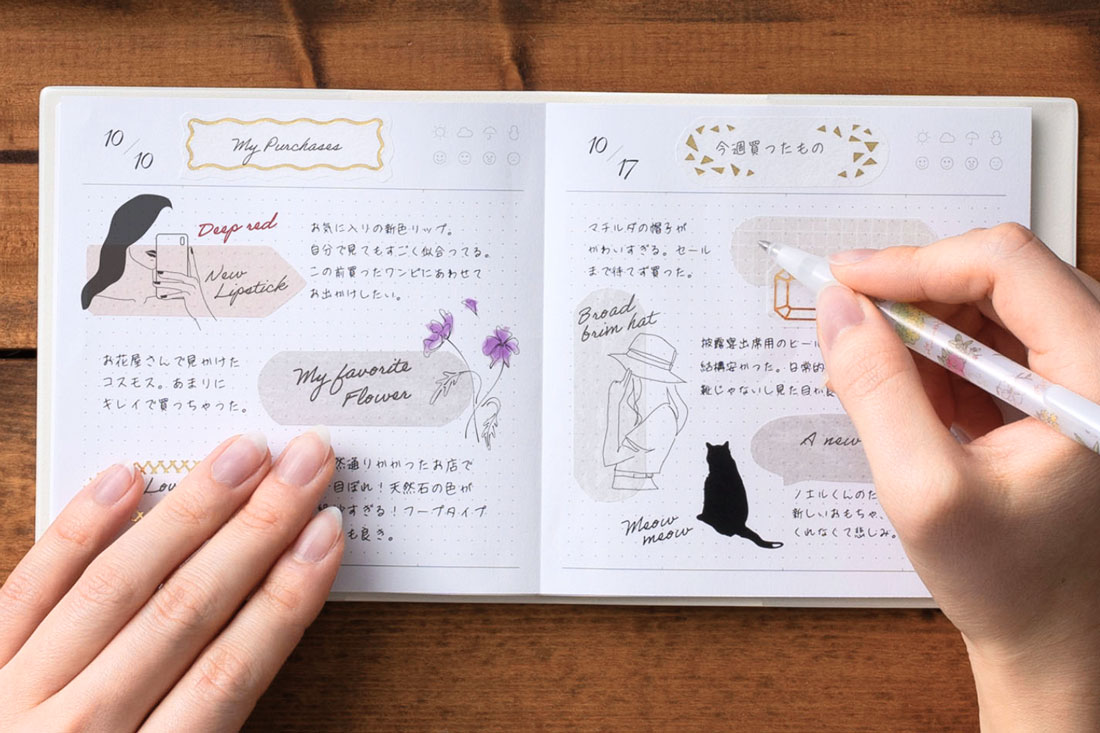 10/10
My Purchases
Deep red
New
Lipstick
お気に入りの新色リップ。
自分で見てもすごく似合ってる。
この前買ったワンピにあわせて
お出かけしたい。
お花屋さんで見かけた
コスモス。あまりに
キレイで買っちゃった。
My favorite
Flower
Lov
然通りかかったお店で
目ぼれ！天然石の色が
すぎる！フープタイプ
も良き。
10/17
今週買ったもの
マチルダの帽子が
かわいすぎる。セール
まで待てず買った。
Broad
brim hat
披露宴出席用のヒール
結構安かった。日常的
靴じゃないし見た目が
A new
Meow
meow
ノエルくんのた
新しいおもちゃ、
くれなくて悲しみ。